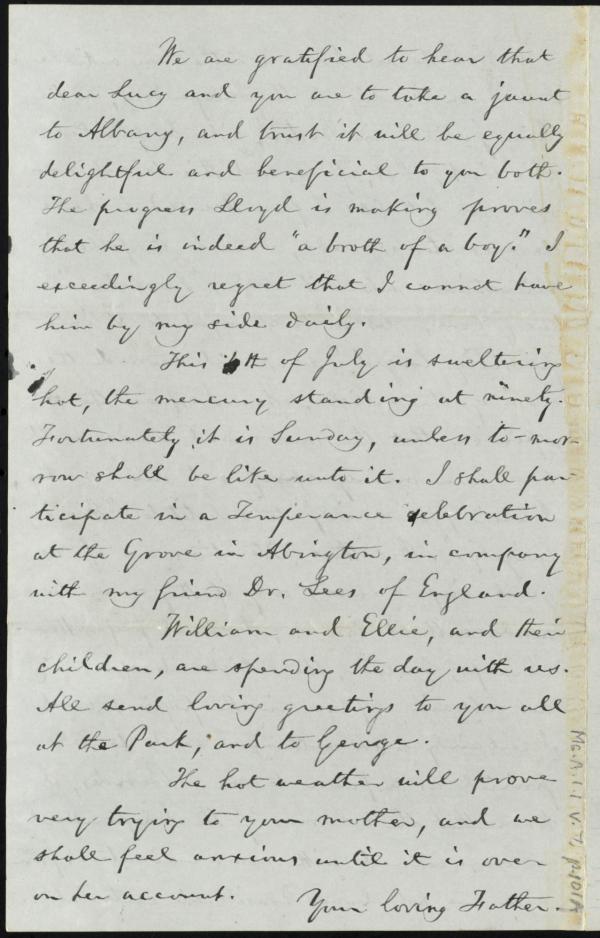 We are gratified to hear that
dear Lucy and you are to take a jaunt
to Albany, and trust it will be equally
delightful and beneficial to you both.
The progress Lloyd is making proves
that he is indeed "a broth of a boy." I
exceedingly regret that I cannot have
him by my side daily.
This 4th of July is sweltering
hot, the mercury standing at ninety.
Fortunately, it is Sunday, unless to-mor-
row shall be like unto it. I shall par-
ticipate in a Temperance celebration
at the Grove in Abington, in company
with my friend Dr. Lees of England.
William and Ellie, and their
children, are spending the day with us.
All send loving greetings to you all
at the Park, and to George.
The hot weather will prove
very trying to your mother, and we
shall feel anxious until it is over
on her account.
Your loving Father.
Ms.A.1.1 V.7, p.101A